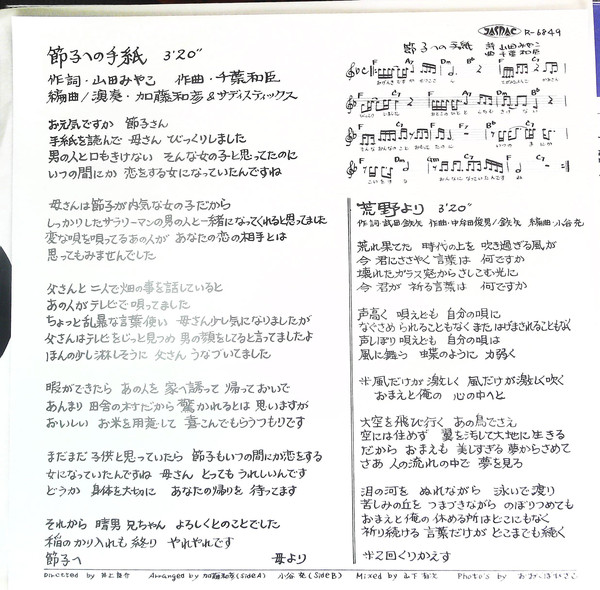 節子への手紙 3'20"
作詞・山田みやこ 作曲・千葉和臣
編曲/演奏・加藤和彦&サディスティックス
お元気ですか 節子さん
手紙を読んで 母さん びっくりしました
男の人と口もきけない そんな女の子と思ってたのに
いつの間にか 恋をする女になっていたんですね
母さんは節子が内気な女の子だから
しっかりしたサラリーマンの男の人と一緒になってくれると思ってました
変な唄を唄ってるあの人が あなたの恋の相手とは
思ってもみませんでした
父さんと 二人で畑の事を話していると
あの人がテレビで 唄ってました
ちょっと乱暴な言葉使い 母さん少し気になりましたが
父さんはテレビをじっと見つめ 男の顔をしてると言ってましたよ
ほんの少し淋しそうに 父さん うなづいてました
暇ができたら あの人を 家へ誘って 帰っておいで
あんまり 田舎の村だから 驚かれるとは 思いますが
おいしい お米を用意して 喜こんでもらうつもりです
まだまだ 子供と思っていたら 節子もいつの間にか恋をする
女になっていたんですね 母さん とっても うれしいんです
どうか 身体を大切に あなたの帰りを 待ってます
それから 晴男 兄ちゃん よろしくとのことでした
稲のかり入れも 終り やれやれです
節子へ 母より
JASRAC R-6849
節子への手紙 詩 山田みやこ
曲 千葉和臣
荒野より 3'20"
作詞・武田鉄矢 作曲・中牟田俊男/鉄矢 編曲・小谷充
荒れ果てた 時代の上を 吹き過ぎる風が
今 君にささやく 言葉は 何ですか
壊れたガラス窓からさしこむ光に
今 君が 祈る言葉は 何ですか
声高く 唄えとも 自分の唄に
なぐさめられることもなく また はげまされることもなく
声しぼり 唄えとも 自分の唄は
風に舞う 蝶のように 力弱く
※風だけが 激しく 風だけが 激しく吹く
おまえと俺の 心の中へと
大空を飛び行く あの鳥でさえ
空には住めず 翼を汚して大地に生きる
だから おまえも 美しすぎる 夢からさめて
さあ 人の流れの中で 夢を見ろ
泪の河を ぬれながら 泳いで渡り
苦しみの丘を つまづきながら のぼりつめても
おまえと俺の 休める所はどこにもなく
祈り続ける 言葉だけが どこまでも続く
※2回くりかえす
Directed by Arranged by 加藤和彦(SideA) 小谷 充(SideB) Mixed by Photo's by